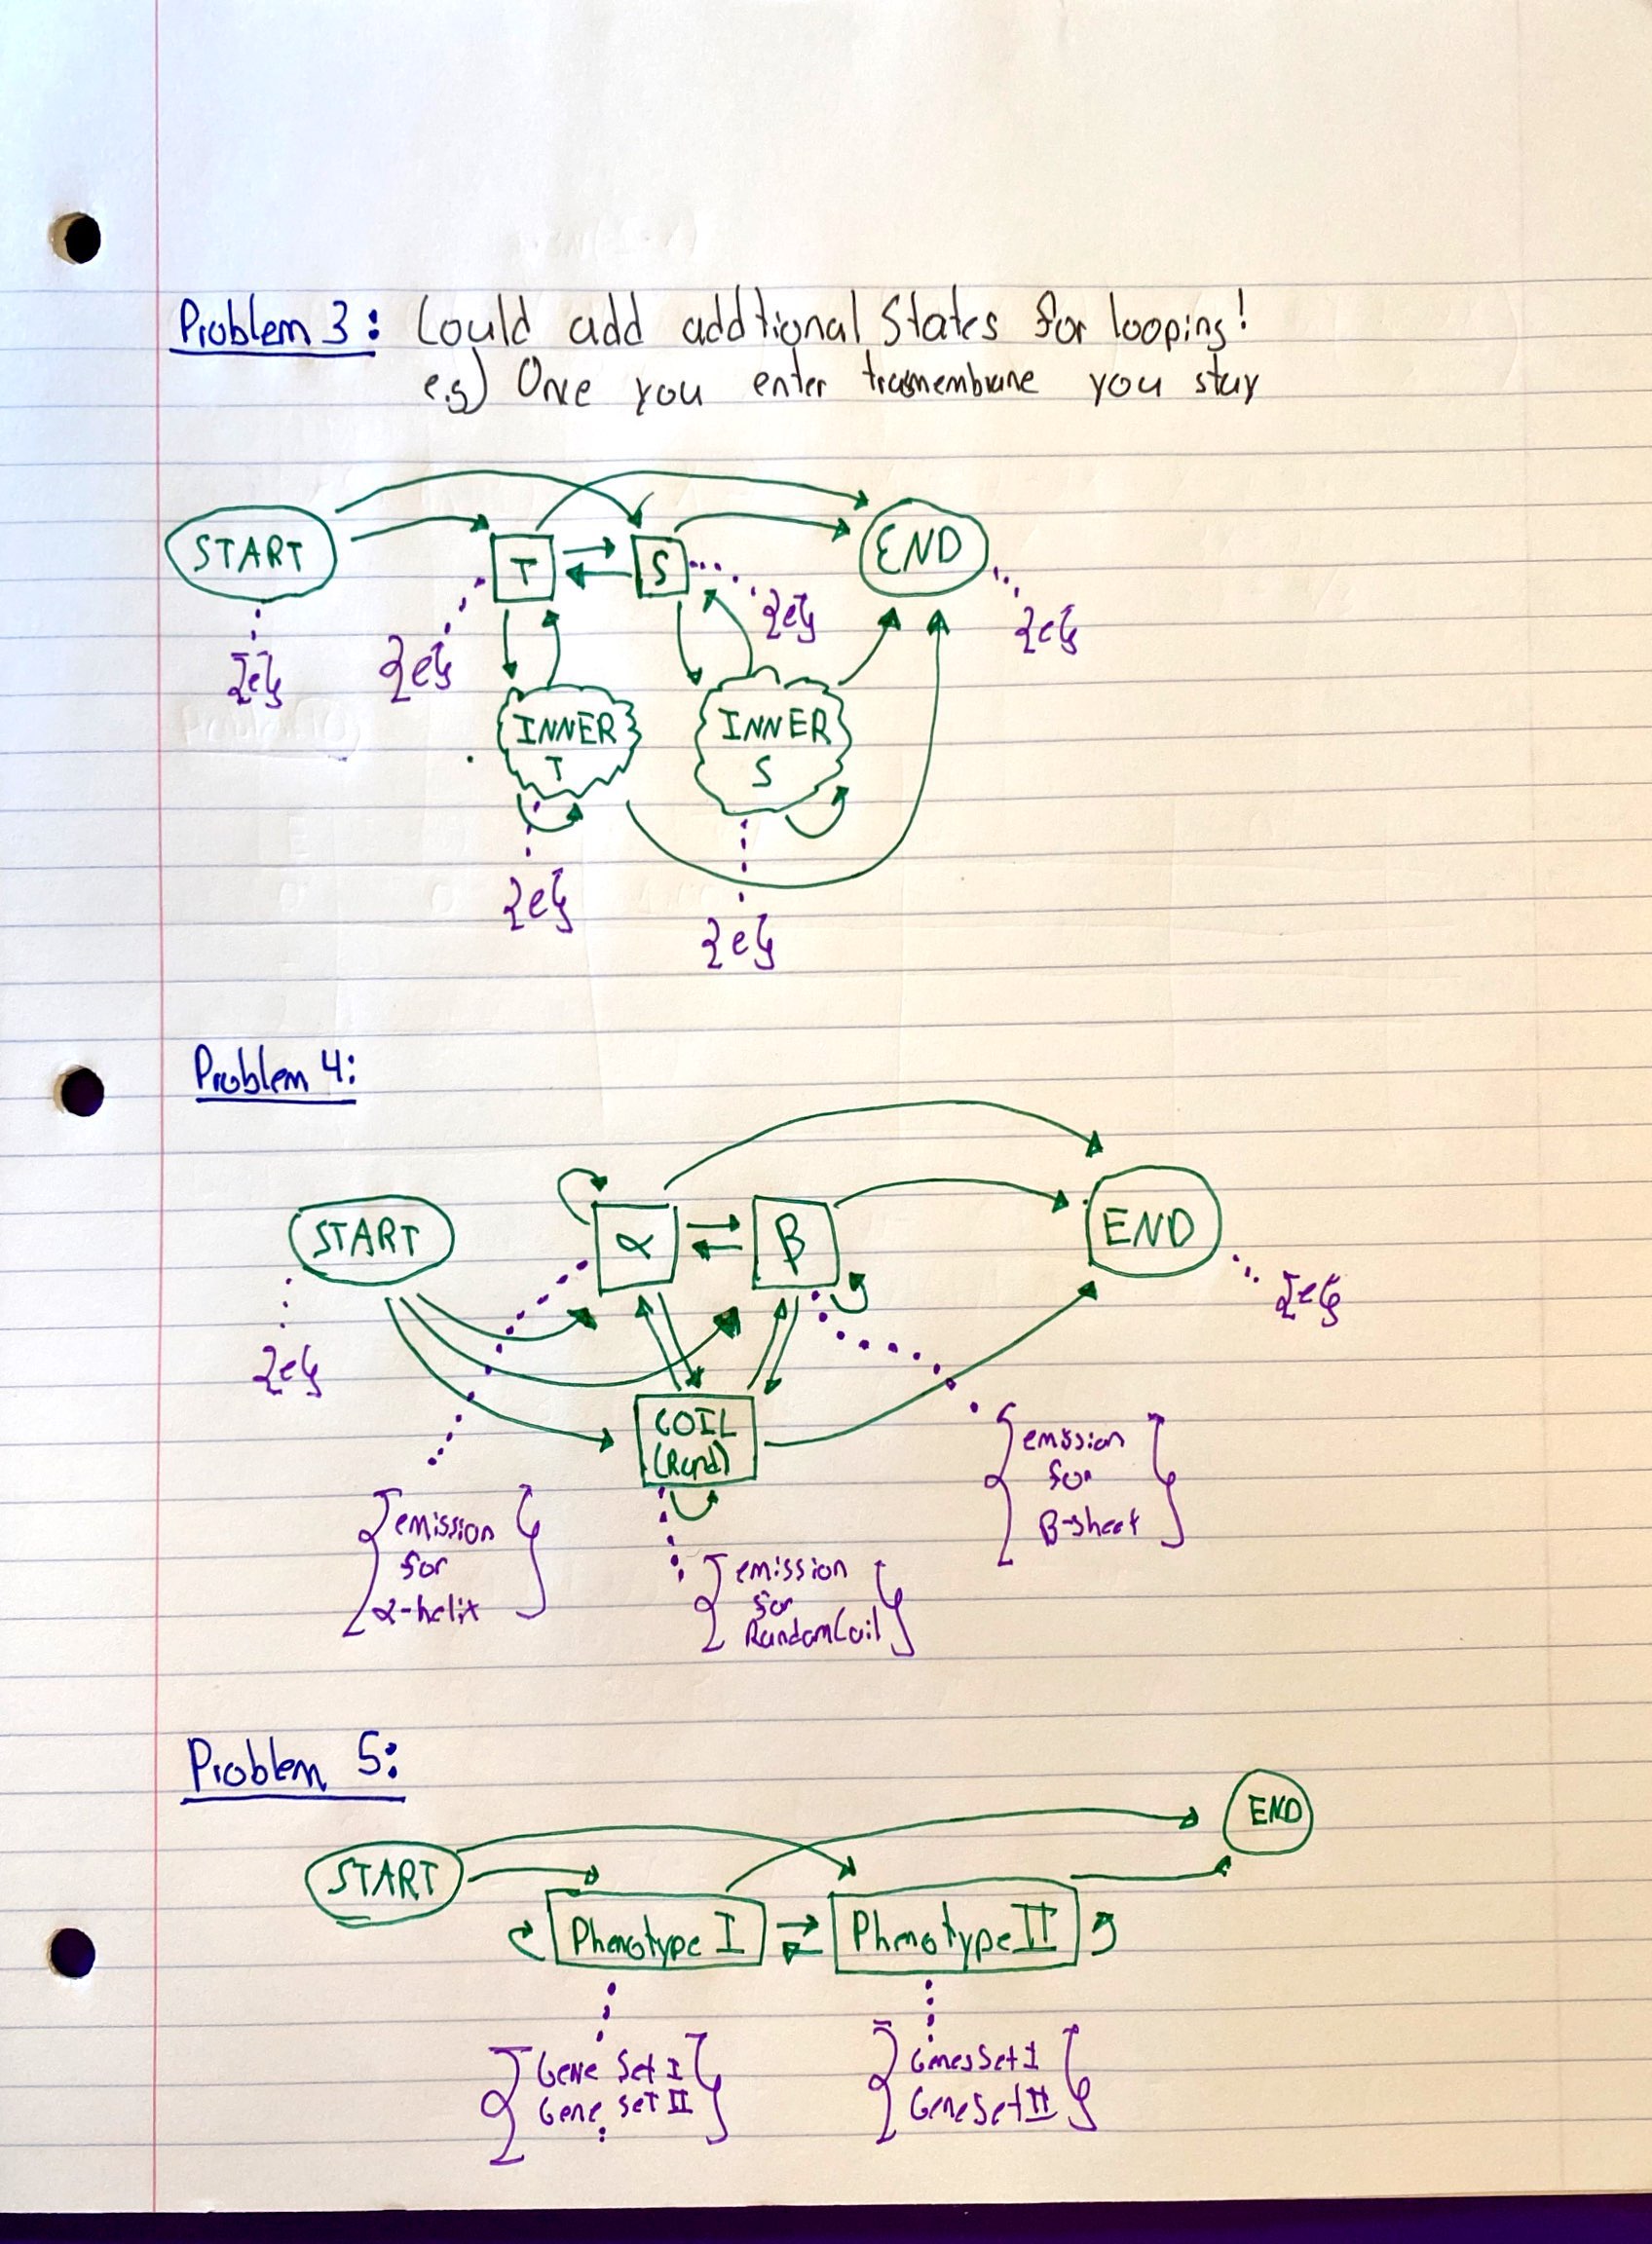 Problem 3: Could add addtional States for looping!
e.g) Once you enter trasmembrane you stay
START
T
S
END
{e}
{e}
{e}
{e}
INNER
T
INNER
S
{e}
{e}
Problem 4:
START
α
β
END
{e}
{e}
COIL
(Rand)
emission
for
β-sheet
emission
for
α-helix
emission
for
RandomCoil
Problem 5:
END
START
Phenotype I
Phenotype II
Gene Set I
Gene Set II
Genes Set I
Gene Set II